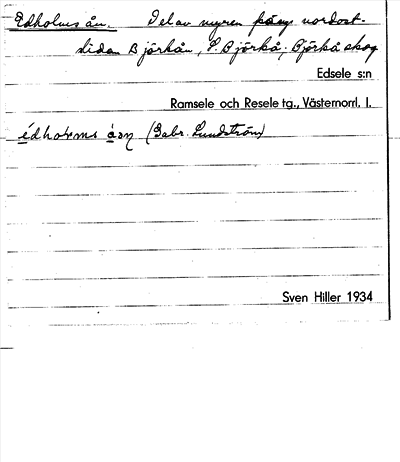 Edholms ån. Del av myren på ny nordost-
sidan Björkån, S. Björkå, Björkå skog
Edsele s:n
Ramsele och Resele tg., Västernorrl. l.
édholms åsn (Gabr. Lundström)
Sven Hiller 1934